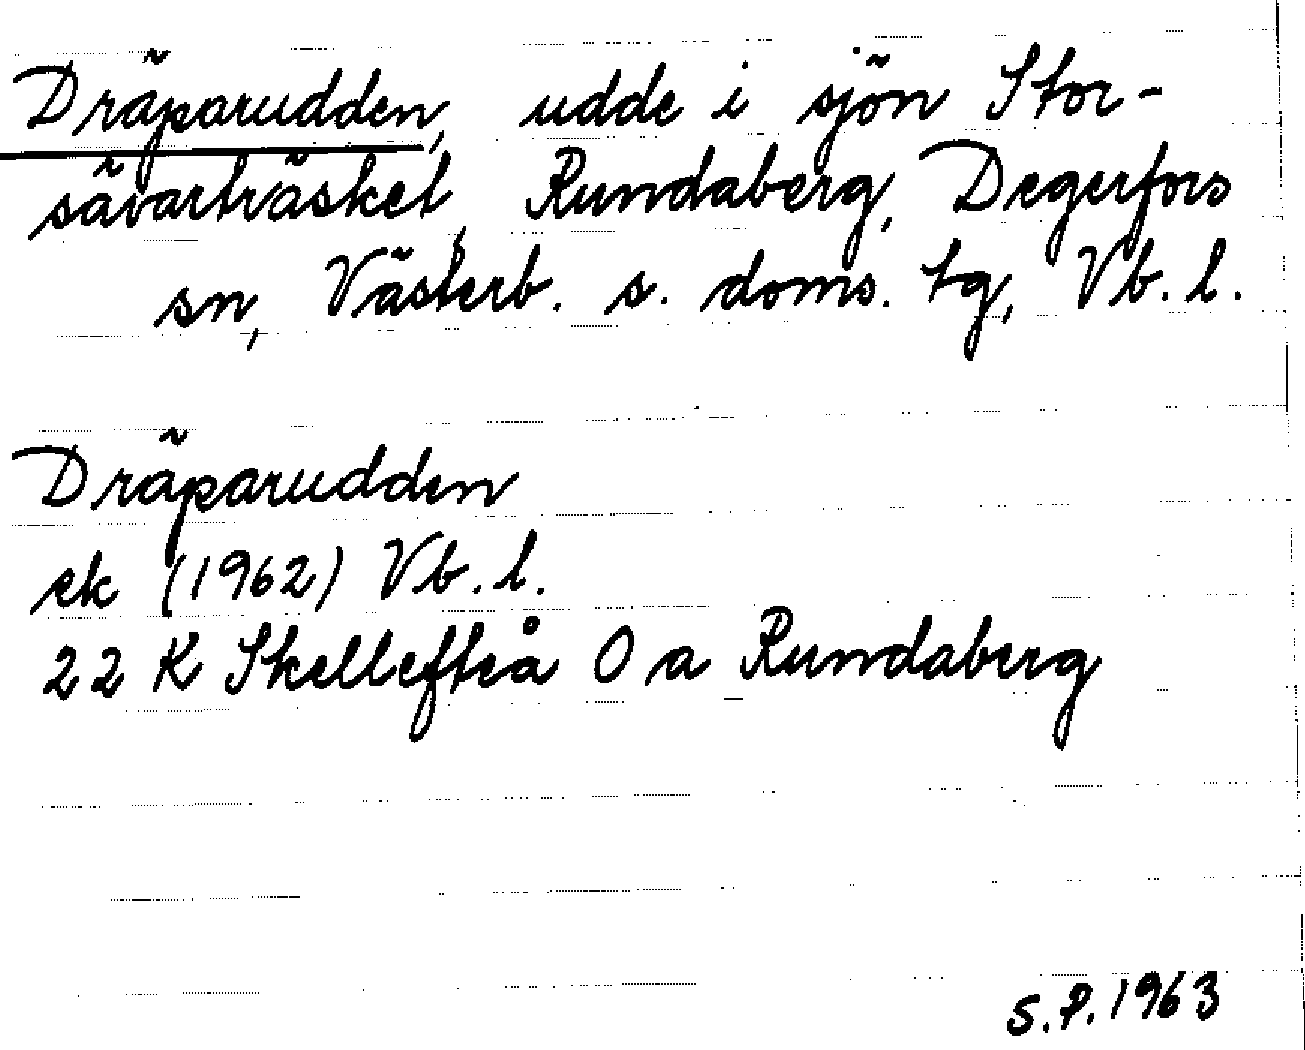 Dräparudden, udde i sjön Stor-
sävarträsket, Rundaberg, Degerfors
sn, Västerb. s. doms. tg, Vb. l.
Dräparudden
ek (1962) Vb. l.
22 K Skellefteå 0 a Rundaberg
S.P. 1963